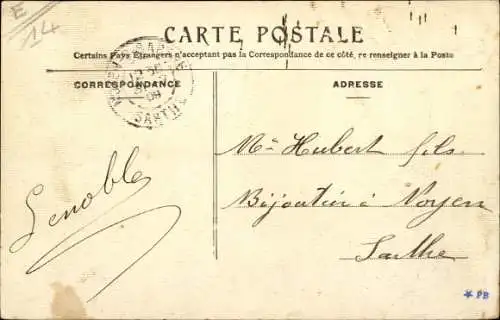 E
14
CARTE POSTALE
Certains Pays Étrangers n'acceptent pas la Correspondance de ce côté, se renseigner à la Poste
CORRESPONDANCE
ADRESSE
SARTHE
08
Mr Hubert fils
Bijoutier à Noyen
Sarthe
Lenoble
* PB